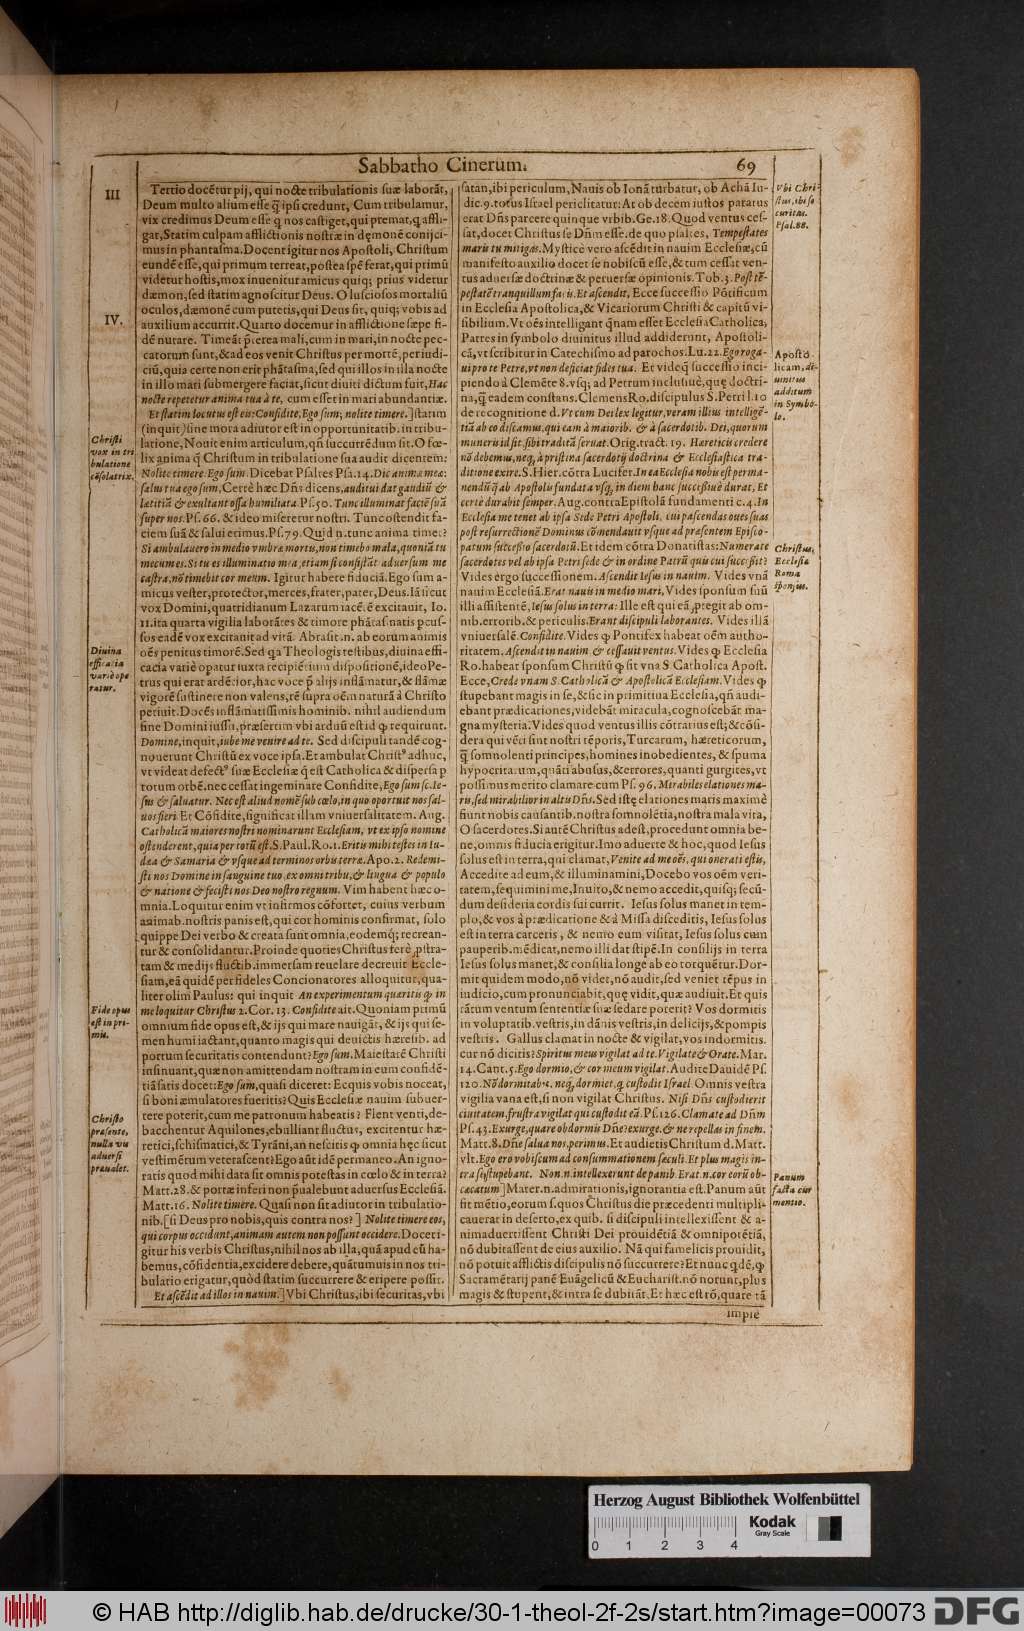 Sabbatho Cinerum. 69
III
Tertio docẽtur pij, qui nocte tribulationis suæ laborãt,
Deum multo alium esse q̃ ipsi credunt, Cum tribulamur,
vix credimus Deum esse q nos castiget, qui premat, q affli-
gat, Statim culpam afflictionis nostræ in dęmonẽ conijci-
mus in phantasma. Docent igitur nos Apostoli, Christum
eundẽ esse, qui primum terreat, postea spẽ ferat, qui primũ
videtur hostis, mox invenitur amicus quiq; prius videtur
dæmon, sed statim agnoscitur Deus. O lusciosos mortaliũ
oculos, dæmonẽ cum putetis, qui Deus sit, quiq; vobis ad
IV.
auxilium accurrit. Quarto docemur in afflictione sæpe fi-
dẽ nutare. Timeãt
catorum sunt, & ad eos venit Christus per mortẽ, per iudi-
ciũ, quia certe non erit phãtasma, sed qui illos in illa nocte
in illo mari submergere faciat, sicut diuiti dictum fuit, Hac
nocte repetetur anima tua à te, cum esset in mari abundantiæ.
Et statim locutus est eis: Confidite, Ego sum; nolite timere.] statim
(inquit) sine mora adiutor est in opportunitatib. in tribu-
Christi
vox in tri
bulatione
cõsolatrix.
latione, Nouit enim articulum, qñ succurrẽdum sit. O fœ-
lix anima q̃ Christum in tribulatione sua audit dicentem:
Nolite timere. Ego sum. Dicebat Psaltes Psa. 14. Dic animæ meæ:
salus tua ego sum, Certè hæc Dñs dicens, auditui dat gaudiũ &
lætitiã & exultant ossa humiliata Ps. 50. Tunc illuminat faciẽ suã
super nos. Ps. 66. & ideo miseretur nostri. Tunc ostendit fa-
ciem suã & salui erimus. Ps. 79. Quid n. tunc anima timet?
Si ambulauero in medio vmbra mortis, non timebo mala, quoniã tu
mecum es. Si tu es illuminatio mea, etiam si consistãt aduersum me
castra, nõ timebit cor meum. Igitur habete fiduciã. Ego sum a-
micus vester, protector, merces, frater, pater, Deus. Iã sicut
vox Domini, quatridianum Lazarum iacẽtẽ excitauit, Io.
11. ita quarta vigilia laborãtes & timore phãtasmatis pcus-
sos eadẽ vox excitauit ad vitã. Abrasit. n. ab eorum animis
Diuina
efficacia
variè ope
ratur.
oẽs penitus timorẽ. Sed qa Theologis testibus, diuina effi-
cacia variè opatur iuxta recipiẽtium dispositionẽ, ideo Pe-
trus qui erat ardẽtior, hac voce p alijs inflãmatur, & flãmæ
vigorẽ sustinere non valens, rẽ supra oẽm naturã à Christo
petiuit. Docẽs inflãmatissimis hominib. nihil audiendum
sine Domini iussu, præsertim vbi arduũ est id qp requirunt.
Domine, inquit, iube me venire ad te. Sed discipuli tandẽ cog-
nouerunt Christũ ex voce ipsa. Et ambulat Christ⁹ adhuc,
vt videat defect⁹ suæ Ecclesiæ q̃ est Catholica & dispersa p
totum orbẽ. nec cessat ingeminare Confidite, Ego sum sc. Ie-
sus & saluatur. Nec est aliud nomẽ sub cœlo, in quo oportuit nos sal-
uos fieri Et Cõfidite, significat illam vniuersalitatem. Aug.
Catholicã maiores nostri nominarunt Ecclesiam, vt ex ipso nomine
ostenderent, quia per totũ est. S. Paul. Ro. 1. Eritis mihi testes in Iu-
dæa & Samaria & vsque ad terminos orbis terræ. Apo. 2. Redemi-
sti nos Domine in sanguine tuo, ex omni tribu, & lingua & populo
& natione & fecisti nos Deo nostro regnum. Vim habent hæc o-
mnia. Loquitur enim vt infirmos cõfortet, cuius verbum
animab. nostris panis est, qui cor hominis confirmat, solo
quippe Dei verbo & creata sunt omnia, eodemq; recrean-
tur & consolidantur. Proinde quoties Christus ferè pstra-
tam & medijs fluctib. immersam reuelare decreuit Eccle-
siam, eã quidẽ per fideles Concionatores alloquitur, qua-
liter olim Paulus: qui inquit An experimentum quæritis qp in
Fide opus
est in pri-
mis.
me loquitur Christus 2. Cor. 13. Confidite ait. Quoniam primũ
omnium fide opus est, & ijs qui mare nauigãt, & ijs qui se-
men humi iactant, quanto magis qui deuictis hæresib. ad
portum securitatis contendunt? Ego sum. Maiestatẽ Christi
insinuant, quæ non amittendam nostram in eum confidẽ-
tiã satis docet: Ego sum, quasi diceret: Ecquis vobis noceat,
si boni æmulatores fueritis? Quis Ecclesiæ nauim subuer-
Christo
præsente,
nulla vis
aduersi
præualet.
tere poterit, cum me patronum habeatis? Flent venti, de-
bacchentur Aquilones, ebulliant fluctus, excitentur hæ-
retici, schismatici, & Tyrãni, an nescitis qp omnia hęc sicut
vestimẽtum veterascent? Ego aũt idẽ permaneo. An igno-
ratis quod mihi data sit omnis potestas in cœlo & in terra?
Matt. 28. & portæ inferi non pualebunt aduersus Ecclesiã.
Matt. 16. Nolite timere. Quasi non sit adiutor in tribulatio-
nib. [si Deus pro nobis, quis contra nos?] Nolite timere eos,
qui corpus occidunt, animam autem non possunt occidere. Doceri-
gitur his verbis Christus, nihil nos ab illa, quã apud eũ ha-
bemus, cõfidentia, excidere debere, quãtumuis in nos tri-
bulatio erigatur, quòd statim succurrere & eripere possit.
Et ascẽdit ad illos in nauim.] Vbi Christus, ibi securitas, vbi
satan, ibi periculum, Nauis ob Ionã turbatur, ob Achã Iu-
dic. 9. totus Israel periclitatur: At ob decem iustos paratus
erat Dñs parcere quinque vrbib. Ge. 18. Quod ventus ces-
sat, docet Christus se Dñm esse. de quo psaltes, Tempestates
maris tu mitigas. Mysticè vero ascẽdit in nauim Ecclesiæ, cũ
Vbi Chri-
stus, ibi se
curitas.
Psal. 88.
manifesto auxilio docet se nobiscũ esse, & tum cessat ven-
tus aduersæ doctrinæ & peruersæ opinionis. Tob. 3. Post tẽ-
pestatẽ tranquillum facis. Et ascendit, Ecce successio Põtificum
in Ecclesia Apostolica, & Vicariorum Christi & capitũ vi-
sibilium. Vt oẽs intelligant q̃nam esset Ecclesia Catholica,
Patres in symbolo diuinitus illud addiderunt, Apostoli-
Aposto
licam, di-
uinitus
additum
in Symbo-
lo.
cã, vt scribitur in Catechismo ad parochos. Lu. 22. Ego roga-
ui pro te Petre, vt non deficiat fides tua. Et videq̃ successio inci-
piendo à Clemẽte 8. vsq; ad Petrum inclusiuè, quę doctri-
na, q̃ eadem constans. Clemens Ro. discipulus S. Petri l. 10
de recognitione d. Vt cum Dei lex legitur, veram illius intelligẽ-
tiã ab eo discamus, qui eam à maiorib. & à sacerdotib. Dei, quorum
muneris id sit, sibi traditã seruat. Orig. tract. 19. Hæreticis credere
nõ debemus, neq; à pristina sacerdotij doctrina & Ecclesiastica tra-
ditione exire. S. Hier. cõtra Lucifer. In ea Ecclesia nobis est perma-
nendũ q̃ ab Apostolis fundata vsq; in diem hanc successiuè durat, Et
certè durabit semper. Aug. contra Epistolã fundamenti c. 4. In
Ecclesia me tenet ab ipsa Sede Petri Apostoli, cui pascendas oues suas
post resurrectionẽ Dominus cõmendauit vsque ad præsentem Episco-
patum successio sacerdotũ. Et idem cõtra Donatistas: Numerate
Christus,
Ecclesiæ
Romæ
sponsus.
sacerdotes vel ab ipsa Petri sede & in ordine Patrũ quis cui successit?
Vides ergo successionem. Ascendit Iesus in nauim. Vides vnã
nauim Ecclesiã. Erat nauis in medio mari, Vides sponsum suũ
illi assistentẽ, Iesus solus in terra: Ille est qui eã ptegit ab om-
nib. errorib. & periculis. Erant discipuli laborantes. Vides illã
vniuersalẽ. Confidite. Vides qp Pontifex habeat oẽm autho-
ritatem. Ascendit in nauim & cessauit ventus. Vides qp Ecclesia
Ro. habeat sponsum Christũ qp sit vna S Catholica Apost.
Ecce, Crede vnam S. Catholicã & Apostolicã Ecclesiam. Vides qp
stupebant magis in se, & sic in primitiua Ecclesia, qñ audi-
ebant prædicationes, videbãt miracula, cognoscebãt ma-
gna mysteria. Vides quod ventus illis cõtrarius est; & cõsi-
dera qui vẽti sint nostri tẽporis, Turcarum, hæreticorum,
q̃ somnolenti principes, homines inobedientes, & spuma
hypocritarum, quãti abusus, & errores, quanti gurgites, vt
possimus merito clamare cum Ps. 96. Mirabiles elationes ma-
ris, sed mirabilior in altis Dñs. Sed istę elationes maris maximè
fiunt nobis causantib. nostra somnolẽtia, nostra mala vita,
O sacerdotes. Si autẽ Christus adest, procedunt omnia be-
ne, omnis fiducia erigitur. Imo aduerte & hoc, quod Iesus
solus est in terra, qui clamat, Venite ad me oẽs, qui onerati estis,
Accedite ad eum, & illuminamini, Docebo vos oẽm veri-
tatem, sequimini me, Inuito, & nemo accedit, quisq; secũ-
dum desideria cordis sui currit. Iesus solus manet in tem-
plo, & vos à prædicatione & à Missa disceditis, Iesus solus
est in terra carceris, & nemo eum visitat, Iesus solus cum
pauperib. mẽdicat, nemo illi dat stipẽ. In consilijs in terra
Iesus solus manet, & consilia longe ab eo torquẽtur. Dor-
mit quidem modo, nõ videt, nõ audit, sed veniet tẽpus in
iudicio, cum pronunciabit, quę vidit, quæ audiuit. Et quis
tãtum ventum sententiæ suæ sedare poterit? Vos dormitis
in voluptatib. vestris, in dãnis vestris, in delicijs, & pompis
vestris. Gallus clamat in nocte & vigilat, vos indormitis.
cur nõ dicitis? Spiritus meus vigilat ad te. Vigilate & Orate. Mar.
14. Cant. 5. Ego dormio, & cor meum vigilat. Audite Dauidẽ Ps.
120. Nõ dormitabit, neq; dormiet, q custodit Israel. Omnis vestra
vigilia vana est, si non vigilat Christus. Nisi Dñs custodierit
ciuitatem, frustra vigilat qui custodit eã. Ps. 126. Clamate ad Dñm
Ps. 43. Exurge, quare obdormis Dñe? exurge. & ne repellas in finem.
Matt. 8. Dñe salua nos, perimus. Et audietis Christum d. Matt.
vlt. Ego ero vobiscum ad consummationem sæculi. Et plus magis in-
tra se stupebant. Non. n. intellexerunt de panib. Erat. n. cor eorũ ob-
Panum
facta cur
mentio.
cæcatum] Mater. n. admirationis, ignorantia est. Panum aũt
fit mẽtio, eorum s. quos Christus die præcedenti multipli-
cauerat in deserto, ex quib. si discipuli intellexissent & a-
nimaduertissent Christi Dei prouidẽtiã & omnipotẽtiã,
nõ dubitassent de eius auxilio. Nã qui famelicis prouidit,
nõ potuit afflictis discipulis nõ succurrere? Et nunc qdẽ, qp
Sacramẽtarij panẽ Euãgelicũ & Eucharist. nõ norunt, plus
magis & stupent, & intra se dubitãt. Et hæc est rõ, quare tã
impie
Herzog August Bibliothek Wolfenbüttel
0 1 2 3 4
Kodak
Gray Scale
© HAB http://diglib.hab.de/drucke/30-1-theol-2f-2s/start.htm?image=00073 DFG